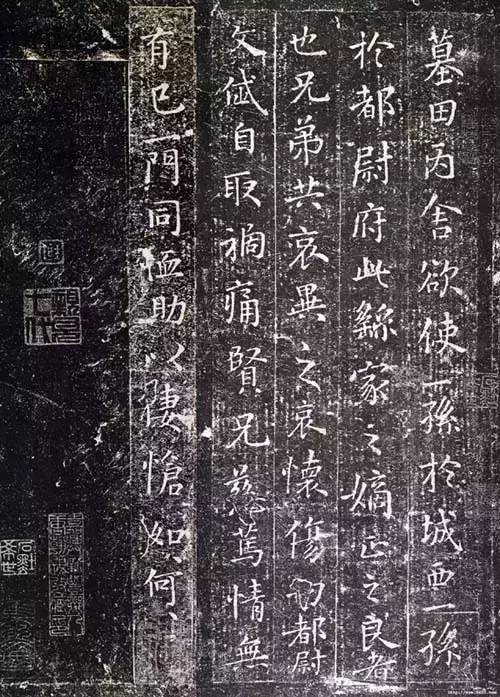 墓田丙舍欲使一孫於城西一孫
於都尉府此繇家之嫡正之良者
也兄弟共哀異之哀懷傷切都尉
文岱自取禍痛賢兄慈篤情無
有已一門同恤助以悽愴如何〻